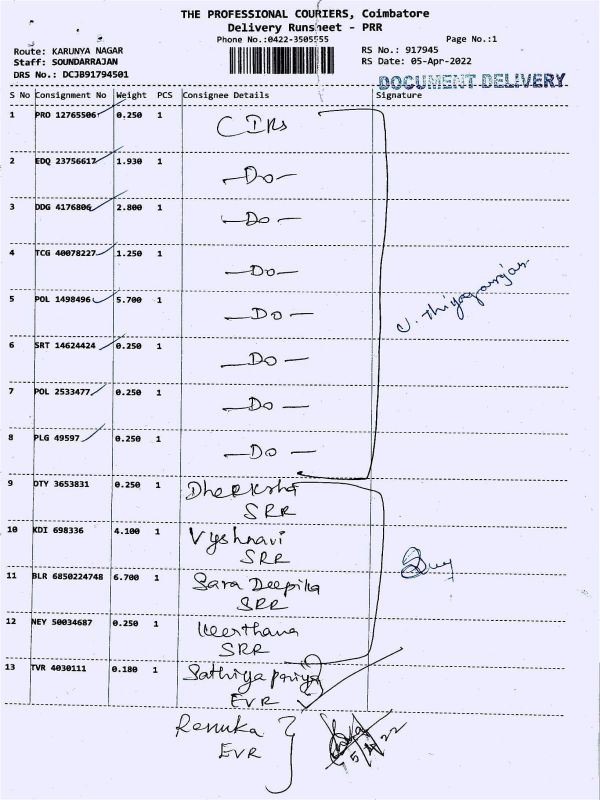 THE PROFESSIONAL COURIERS, Coimbatore
Delivery Runsheet - PRR
Phone No.:0422-3505555 Page No.:1
Route: KARUNYA NAGAR RS No.: 917945
Staff: SOUNDARRAJAN RS Date: 05-Apr-2022
DRS No.: DCJB91794501
DOCUMENT DELIVERY
S No Consignment No Weight PCS Consignee Details Signature
1 PRO 12765506 0.250 1 CIRs
2 EDQ 23756617 1.930 1 -Do-
3 DDG 4176806 2.800 1 -Do-
4 TCG 40078227 1.250 1 -Do-
5 POL 1498496 5.700 1 -Do-
6 SRT 14624424 0.250 1 -Do-
7 POL 2533477 0.250 1 -Do-
8 PLG 49597 0.250 1 -Do-
9 DTY 3653831 0.250 1 Dheeksha
SRR
10 KDI 698336 4.100 1 Vyshnavi
SRR
11 BLR 6850224748 6.700 1 Sara Deepika
SRR
12 NEY 50034687 0.250 1 Keerthana
SRR
13 TVR 4030111 0.180 1 Sathiya priya
EVR
Renuka
EVR